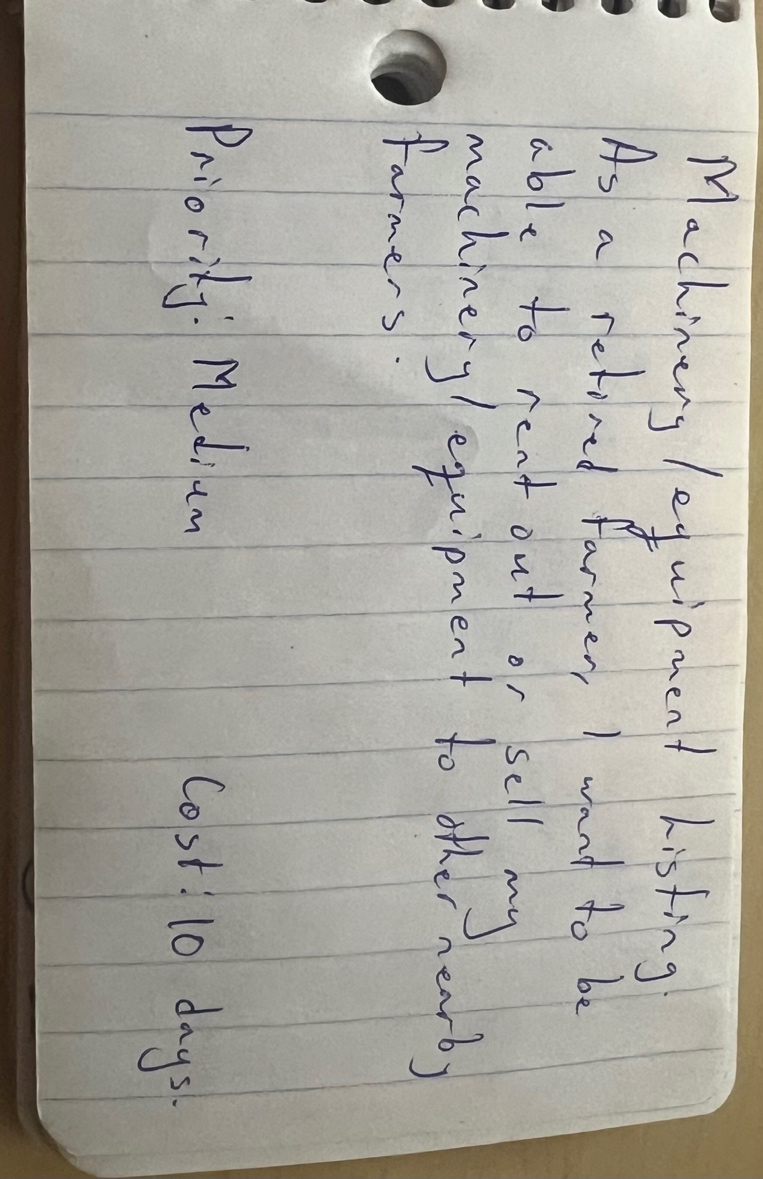 Machinery/equipment listing.
As a retired farmer, I want to be
able to rent out or sell my
machinery/equipment to other nearby
farmers.
Priority: Medium Cost: 10 days.